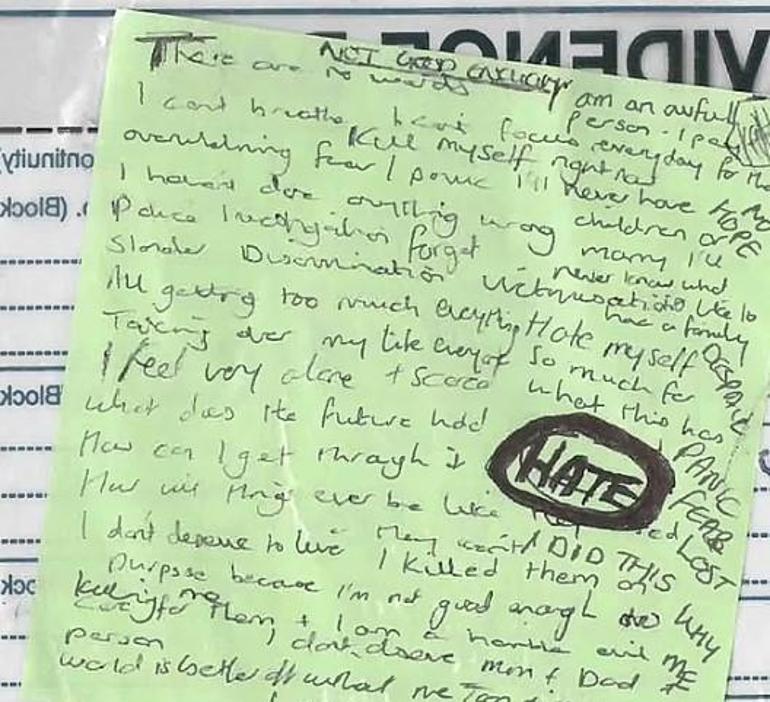 NOT GOOD ENOUGH
There are no words
I am an awful person. I pay everyday for that
I can't breathe. I can't focus
Kill myself right now
overwhelming fear / panic I'll never have
NO HOPE
I haven't done anything wrong children or
Police Investigation forget marry I'll
never know what
Slander Discrimination Victimisation like to
have a family
All getting too much everything Hate myself
DESPAIR
Taking over my life everyday so much for
I feel very alone + scared what this has
what does the future hold
PANIC
How can I get through it
HATE
FEAR
How will things ever be like
LOST
I don't deserve to live They I DID THIS
I killed them on
WHY
purpose because I'm not good enough to
ME
killing me
care for them + I am a horrible evil
person I don't deserve mum + Dad
world is better off without me